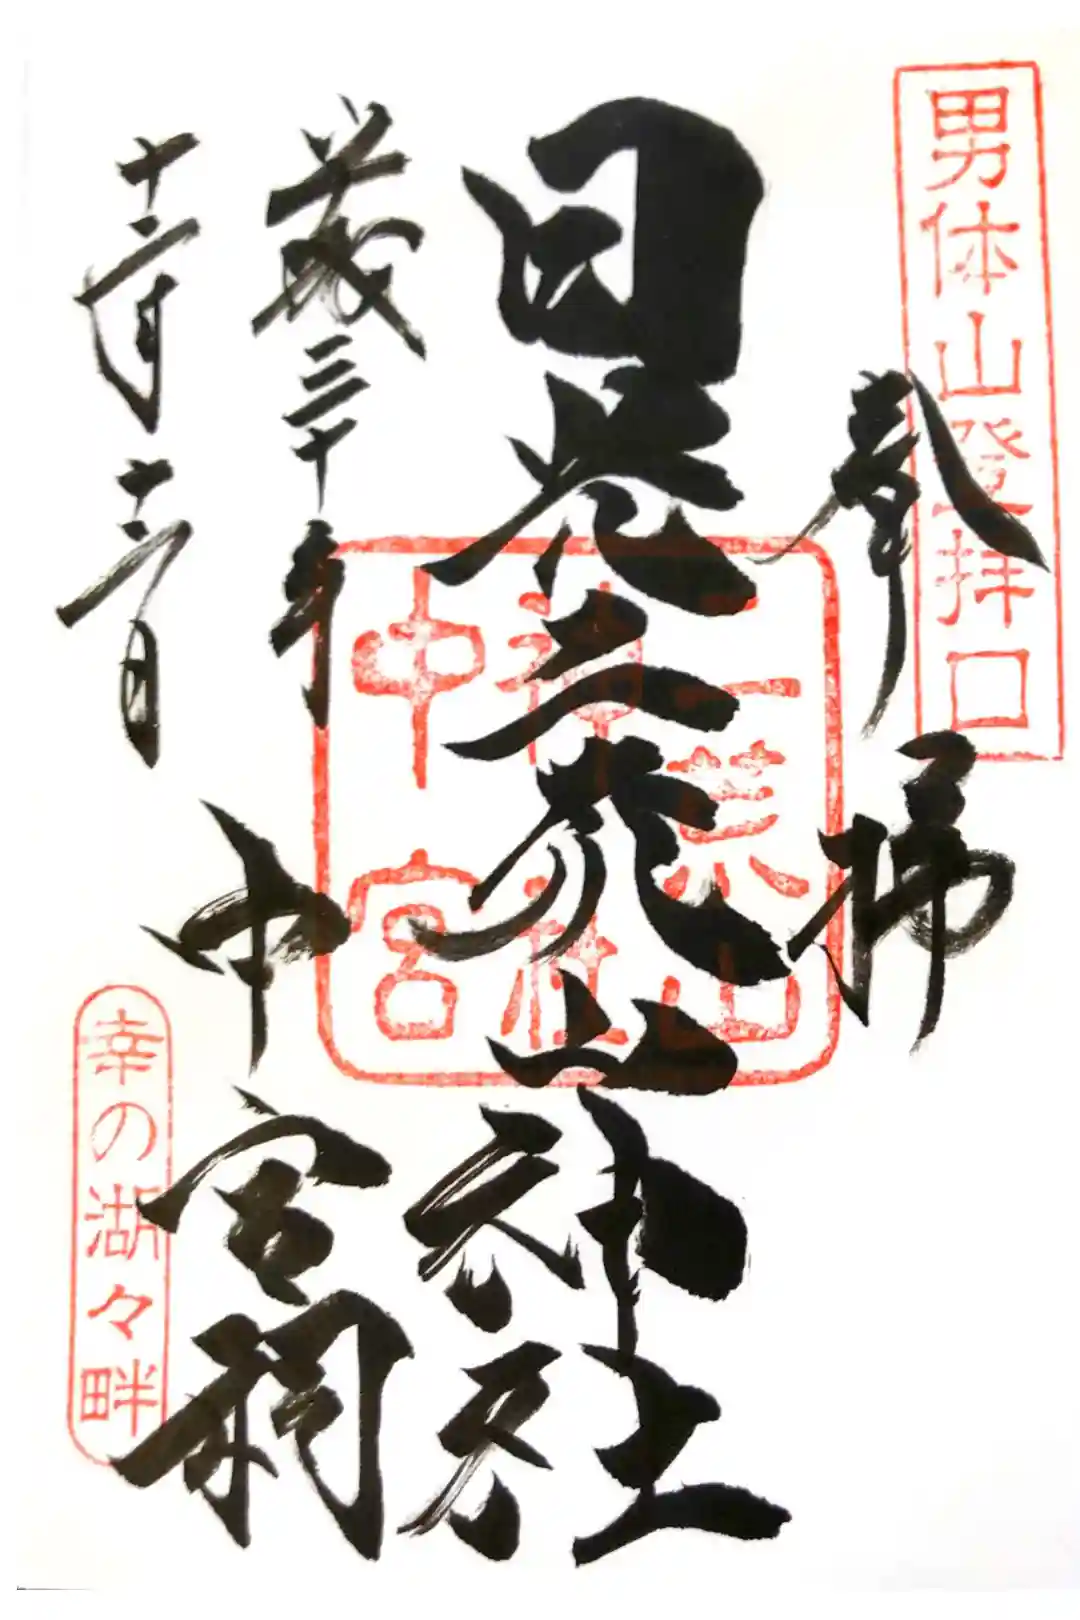 男体山登拝口
奉拝
日光二荒山神社
二荒山
神社
中宮
平成三十年
十二月十二日
中宮祠
幸の湖々畔